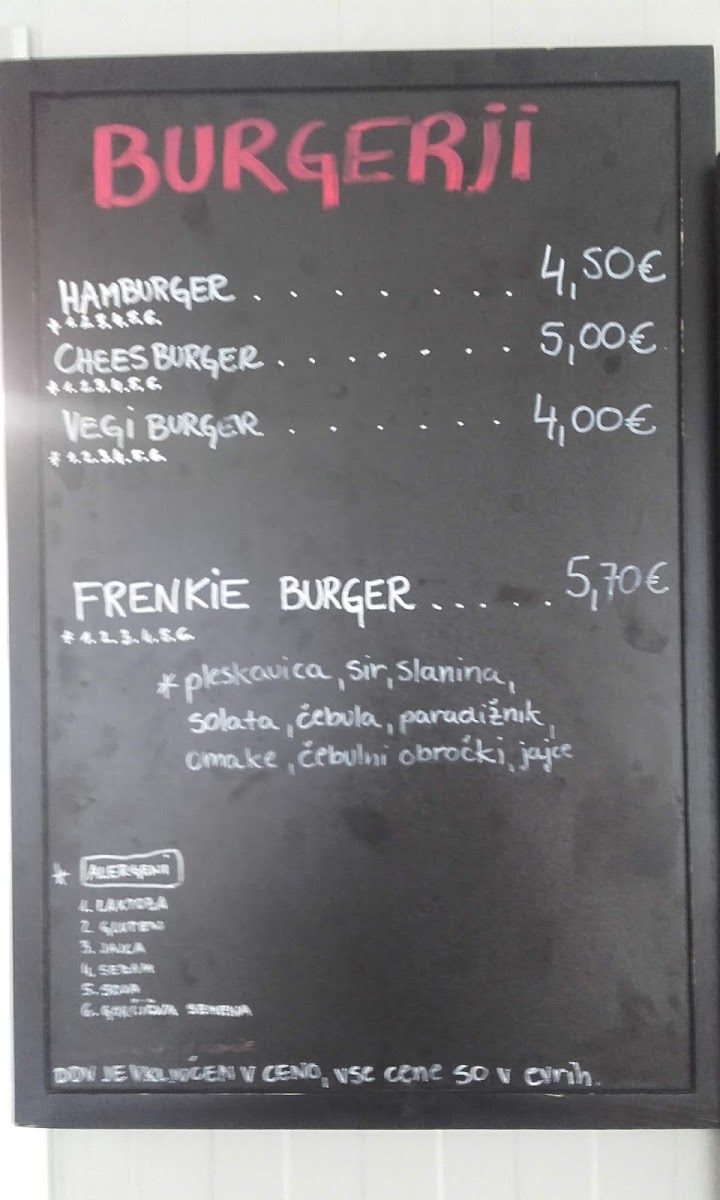 BURGERJI
HAMBURGER . . . . . . . . 4,50€
* 1.2.3.4.5.6.
CHEESBURGER . . . . . . . . 5,00€
* 1.2.3.4.5.6.
VEGI BURGER . . . . . . 4,00€
* 1.2.3.4.5.6.
FRENKIE BURGER . . . . . 5,70€
* 1.2.3.4.5.6.
*pleskavica, sir, slanina,
solata, čebula, paradižnik,
omake, čebulni obročki, jajce
* ALERGENI
1. LAKTOZA
2. GLUTEN
3. JAJCA
4. SEZAM
5. SOJA
6. GORČIČNA SEMENA
DDV JE VKLJUČEN V CENO, vse cene so v evrih.